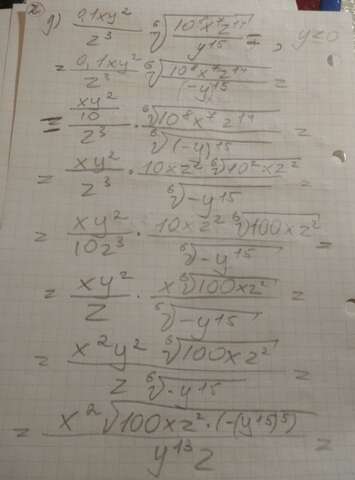 2
g) 0,1xy²/z³ ⁶√(10⁸x⁷z¹⁴/y¹⁵) = , y<0
= 0,1xy²/z³ ⁶√(10⁸x⁷z¹⁴/(-y)¹⁵ =
= (xy²/10)/z³ · ⁶√(10⁸x⁷z¹⁴)/⁶√((-y)¹⁵) =
= xy²/z³ · 10xz² ⁶√(10²xz²)/⁶√(-y¹⁵) =
= xy²/10z³ · 10xz² ⁶√(100xz²)/⁶√(-y¹⁵) =
= xy²/z · x⁶√(100xz²)/⁶√(-y¹⁵) =
= x²y² ⁶√(100xz²)/z ⁶√(-y¹⁵) =
= x²√(100xz²·(-(y¹⁵)⁵)/y¹³z =